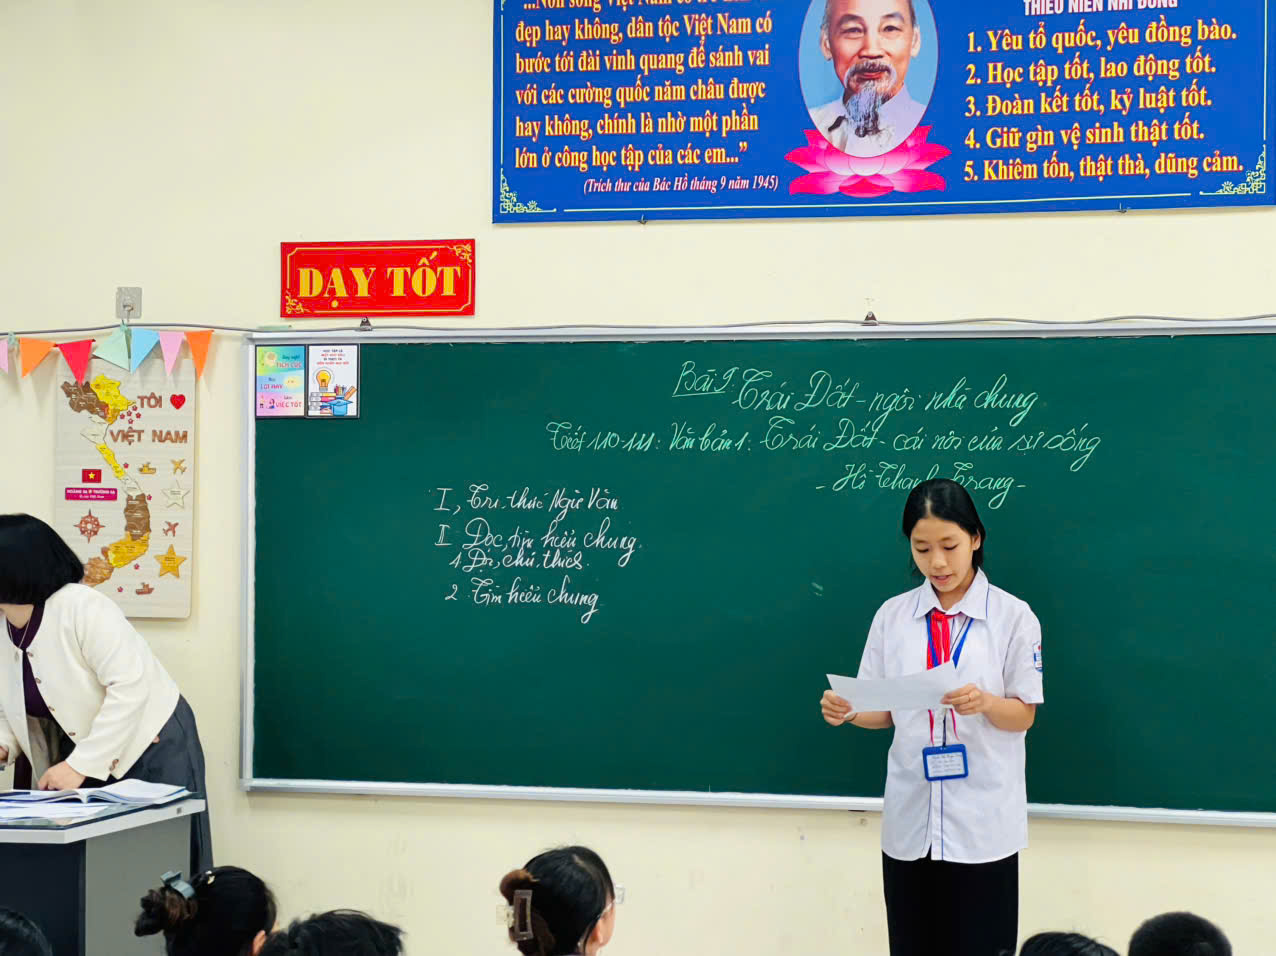 ...Non sông Việt Nam có
đẹp hay không, dân tộc Việt Nam có
bước tới đài vinh quang để sánh vai
với các cường quốc năm châu được
hay không, chính là nhờ một phần
lớn ở công học tập của các em..."
(Trích thư của Bác Hồ tháng 9 năm 1945)
THIẾU NIÊN NHI ĐỒNG
1. Yêu tổ quốc, yêu đồng bào.
2. Học tập tốt, lao động tốt.
3. Đoàn kết tốt, kỷ luật tốt.
4. Giữ gìn vệ sinh thật tốt.
5. Khiêm tốn, thật thà, dũng cảm.
DẠY TỐT
TÍCH CỰC
VIỆC TỐT
TÔI
VIỆT NAM
Bài 9: Trái Đất - ngôi nhà chung
Tiết 110-111: Văn bản 1: Trái Đất - cái nôi của sự sống
- Hồ Thanh Trang -
I, Tri thức Ngữ Văn
II. Đọc, tìm hiểu chung.
1. Đọc, chú thích.
2. Tìm hiểu chung